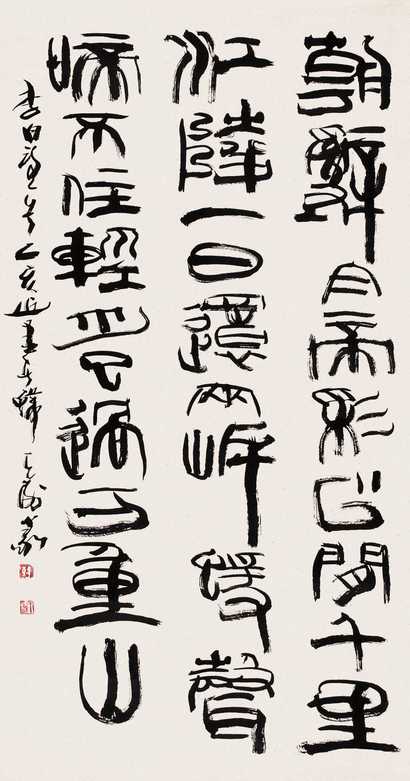 朝辭白帝彩云間千里
江陵一日還兩岸猿聲
啼不住輕舟已過万重山
李白 乙亥